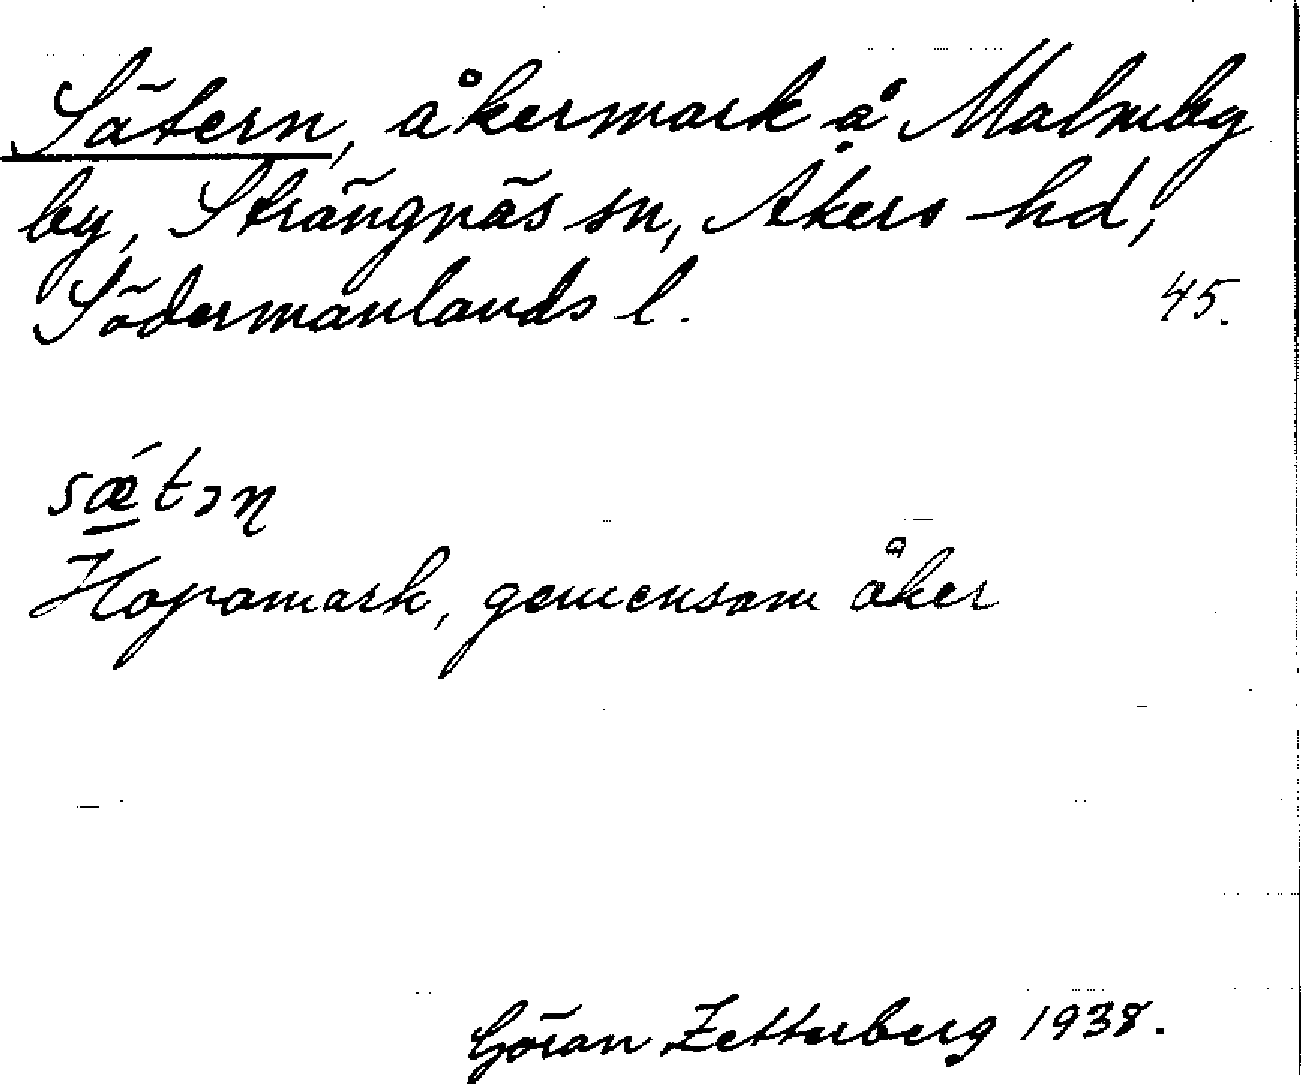 Sätern, åkermark å Malmby
by, Strängnäs sn, Åkers hd,
Södermanlands l. 45.
sǽtəɳ
Hopamark, gemensam åker
Göran Zetterberg 1938.